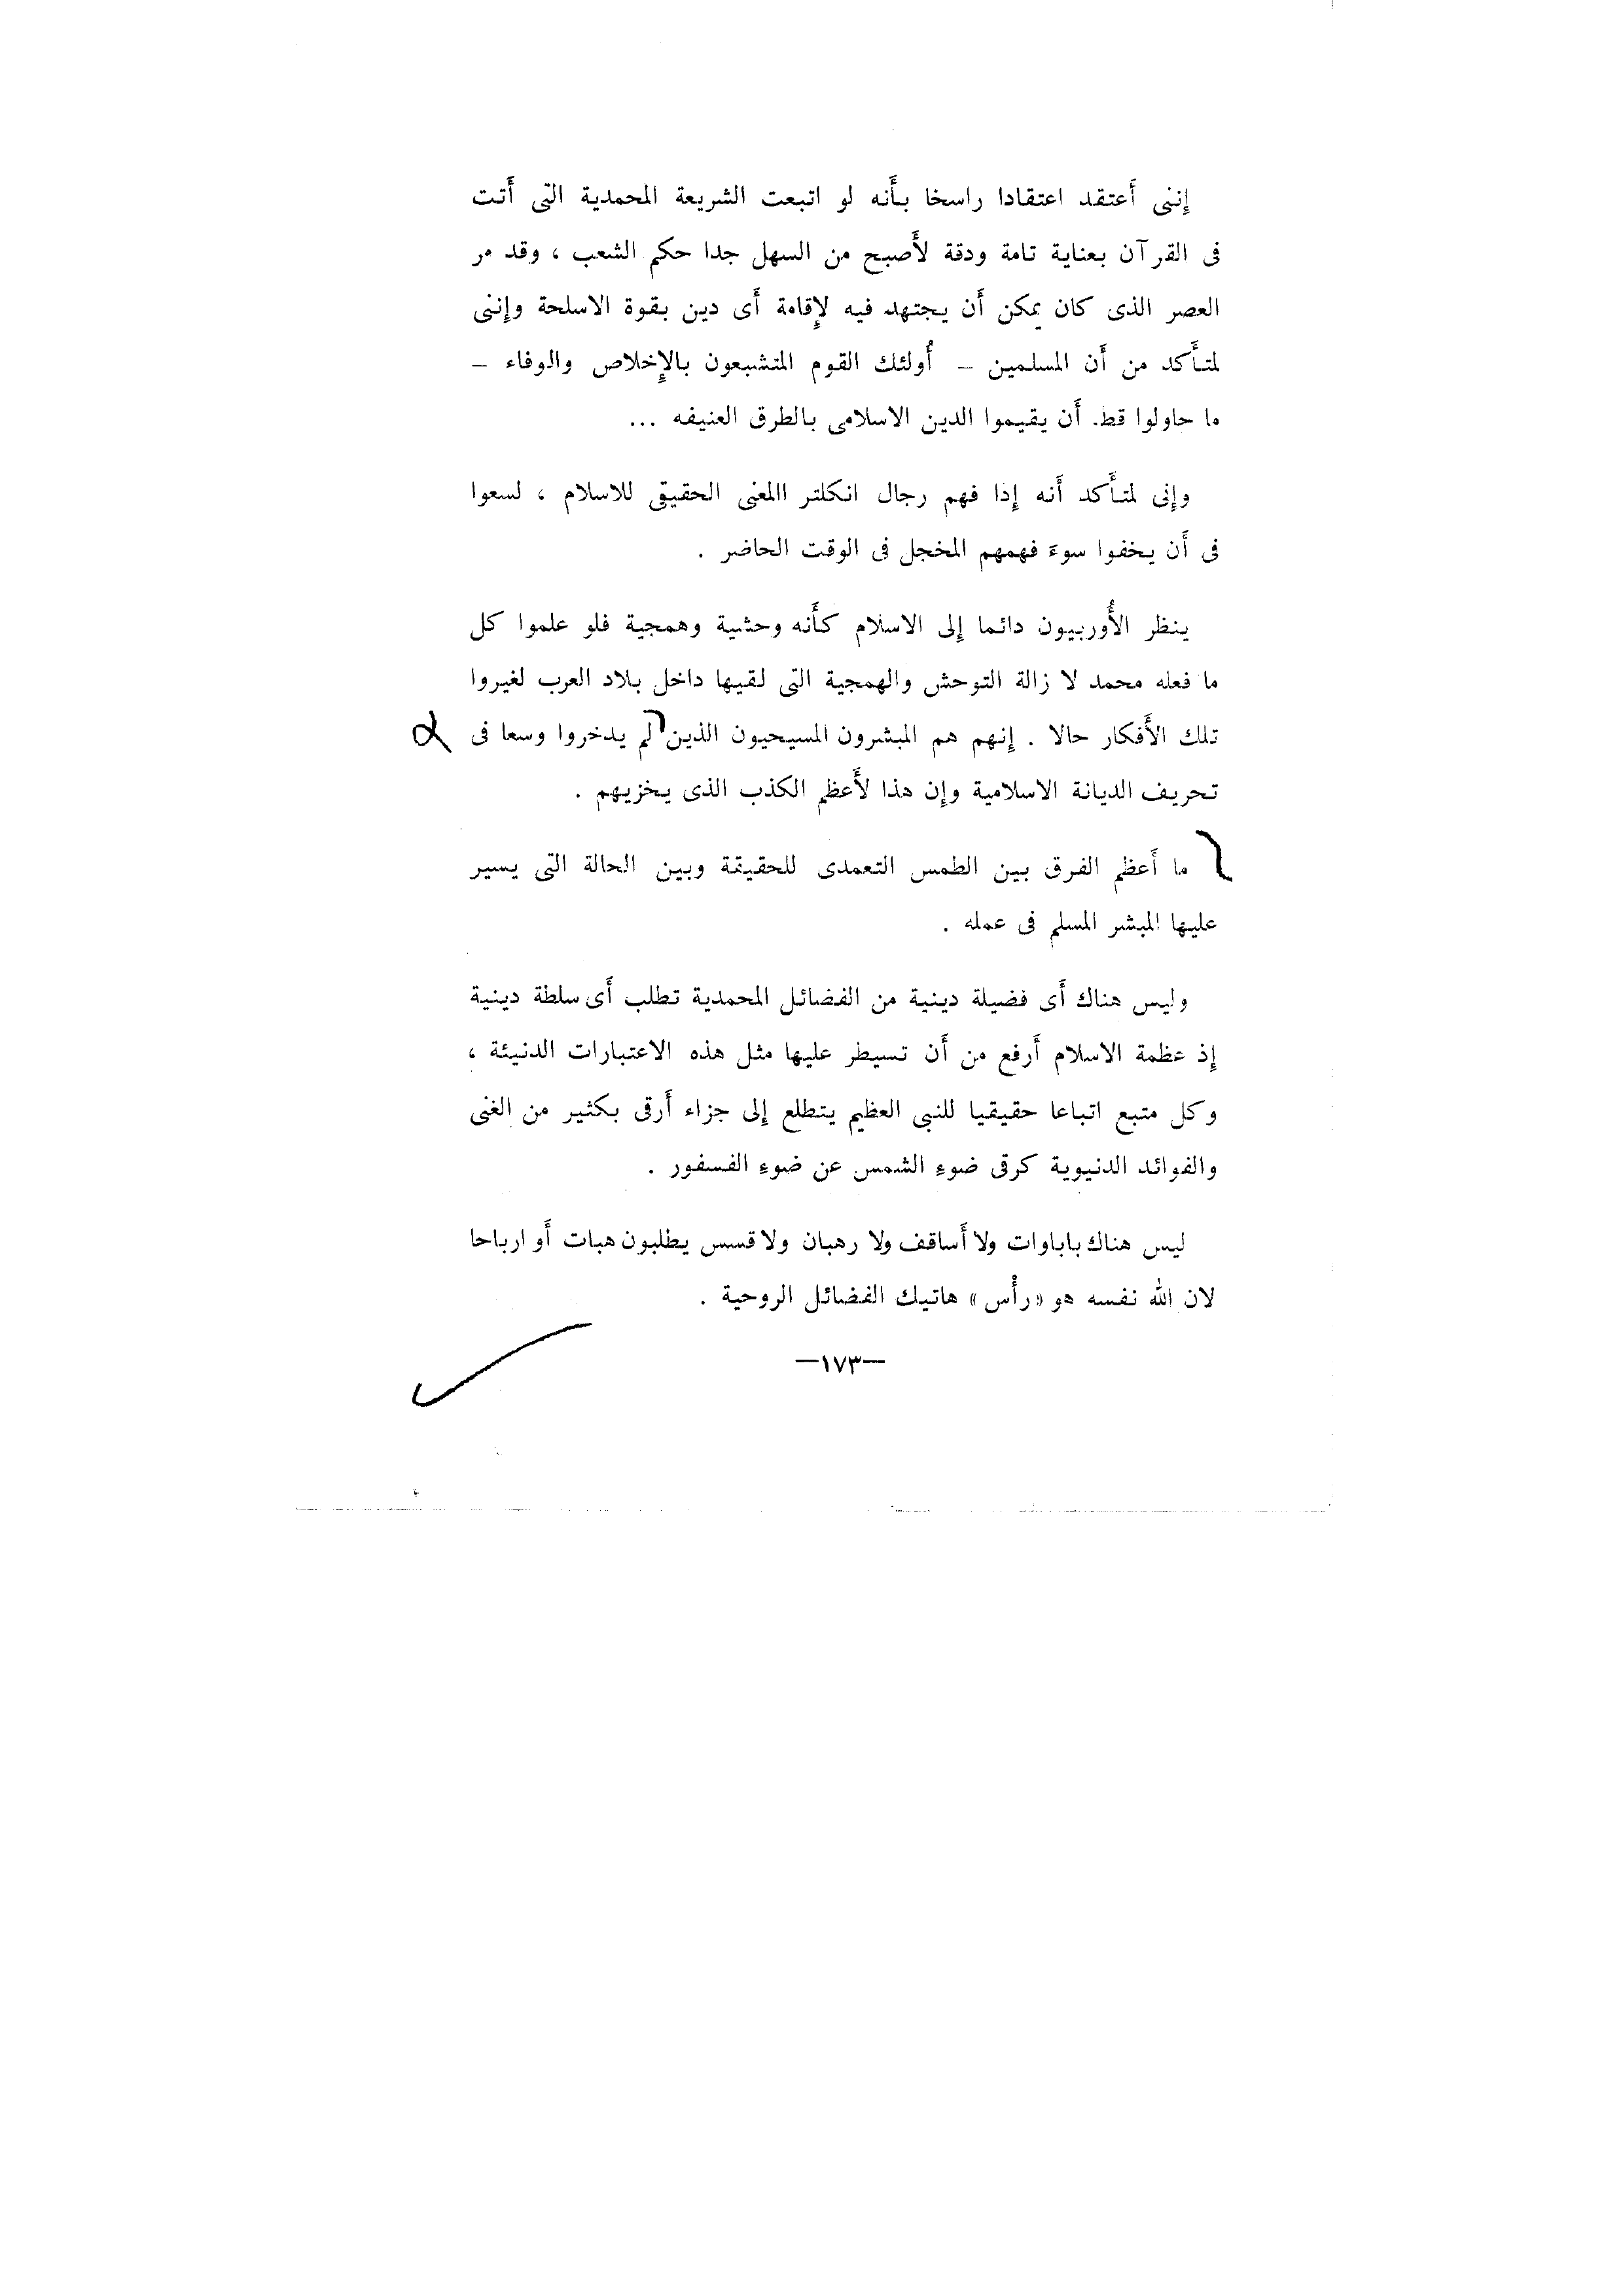 إننى أَعتقد اعتقادا راسخا بأَنه لو اتبعت الشريعة المحمدية التى أَتت
فى القرآن بعناية تامة ودقة لأَصبح من السهل جدا حكم الشعب ، وقد مر
العصر الذى كان يمكن أَن يجتهد فيه لإِقامة أَى دين بقوة الاسلحة وإننى
لمتأَكد من أَن المسلمين – أُولئك القوم المتشبعون بالإِخلاص والوفاء –
ما حاولوا قط. أَن يقيموا الدين الاسلامى بالطرق العنيفه ...
وإنى لمتأَكد أَنه إِذا فهم رجال انكلتر االمغنى الحقيقى للاسلام ، لسعوا
فى أَن يخفوا سوءَ فهمهم المخجل فى الوقت الحاضر .
ينظر الأُوربيون دائما إِلى الاسلام كأَنه وحشية وهمجية فلو علموا كل
ما فعله محمد لا زالة التوحش والهمجية التى لقيها داخل بلاد العرب لغيروا
تلك الأَفكار حالا . إِنهم هم المبشرون المسيحيون الذين لم يدخروا وسعا فى
تحريف الديانة الاسلامية وإن هذا لأَعظم الكذب الذى يخزيهم .
ما أَعظم الفرق بين الطمس التعمدى للحقيقة وبين الحالة التى يسير
عليها المبشر المسلم فى عمله .
وليس هناك أَى فضيلة دينية من الفضائل المحمدية تطلب أَى سلطة دينية
إِذ عظمة الاسلام أَرفع من أَن تسيطر عليها مثل هذه الاعتبارات الدنيئة ،
وكل متبع اتباعا حقيقيا للنبى العظيم يتطلع إِلى جزاء أَرقى بكثير من الغنى
والفوائد الدنيوية كرقى ضوءِ الشمس عن ضوءِ الفسفور .
ليس هناك باباوات ولا أَساقف ولا رهبان ولا قسس يطلبون هبات أَو ارباحا
لان الله نفسه هو «رأْس» هاتيك الفضائل الروحية .
—١٧٣—